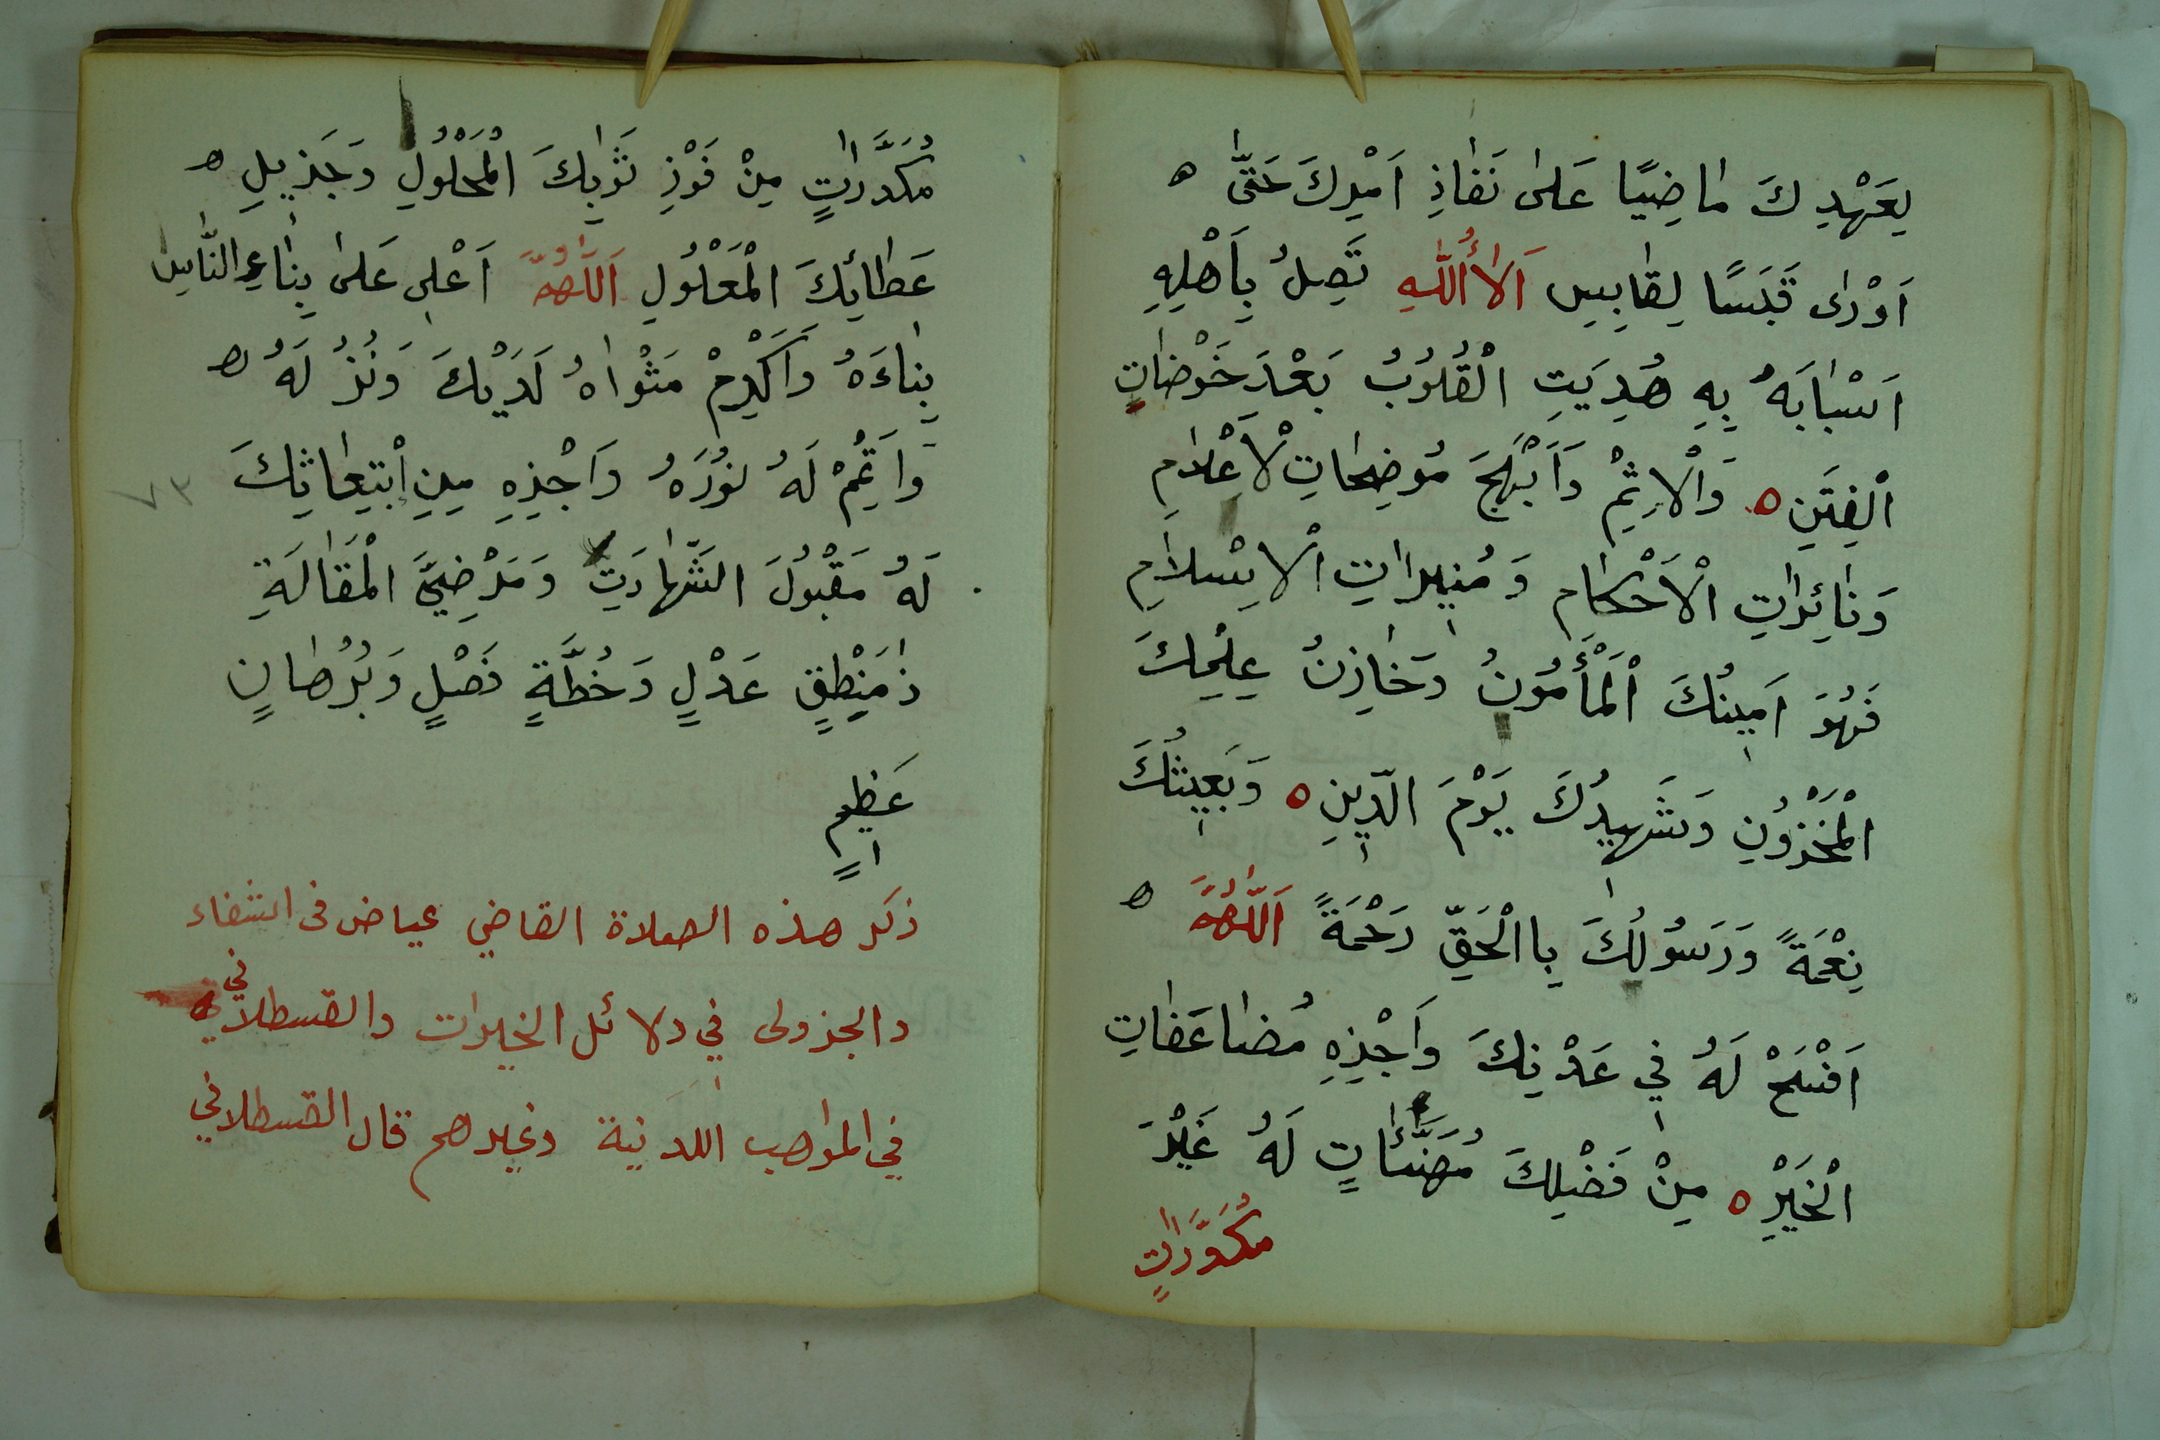 لِعَهْدِكَ مَاضِيًا عَلٰى نَفَاذِ اَمْرِكَ حَتّٰى ه
اَوْرٰى قَبَسًا لِقَابِسٍ اَلاٰءُاللّٰهِ تَصِلُ بِاَهْلِهِ
اَسْبَابَهُ بِهِ هُدِيَتِ الْقُلُوبُ بَعْدَ خَوْضَاتِ
الْفِتَنِ ه وَالْاِثْمِ وَاَبْهَجَ مُوضِحَاتِ لْاَعْلَامِ
وَنَائِرَاتِ الْاَحْكَامِ وَمُنِيرَاتِ الْاِسْلَامِ
فَهُوَ اَمِينُكَ الْمَأْمُونُ وَخَازِنُ عِلْمِكَ
الْمَخْزُونِ وَشَهِيدُكَ يَوْمَ الدِّينِ ه وَبَعِيثُكَ
نِعْمَةً وَرَسُولُكَ بِاالْحَقِّ رَحْمَةً اَللّٰهُمَّ ه
اَفْسَحْ لَهُ فِي عَدْنِكَ وَاَجْزِهِ مُضَاعَفَاتِ
الْخَيْرِ ه مِنْ فَضْلِكَ مُهَنَّئَاتٍ لَهُ غَيْرَ
مُكَدَّرَاتٍ
مُكَدَّرَاتٍ مِنْ فَوْزِ ثَوَابِكَ الْمَحْلُولِ وَجَزِيلِ ه
عَطَائِكَ الْمَعْلُولِ اَللّٰهُمَّ اَعْلِ عَلٰى بِنَاءِ النَّاسِ
بِنَاءَهُ وَاَكْرِمْ مَثْوَاهُ لَدَيْكَ وَنُزُ لَهُ ه
وَاَتْمِمْ لَهُ نُورَهُ وَاَجْزِهِ مِنِ ابْتِعَاثِكَ
٧٣
لَهُ مَقْبُولَ الشَّهَادَتِ وَمَرْضِيَّ الْمَقَالَةِ
ذَا مَنْطِقٍ عَدْلٍ وَخُطَّةٍ فَصْلٍ وَبُرْهَانٍ
عَظِيمٍ
ذكر هذه الصلاة القاضي عياض فى الشفاء
والجزولى في دلائل الخيرات والقسطلاني
في المواهب اللدنية وغيرهم قال القسطلاني